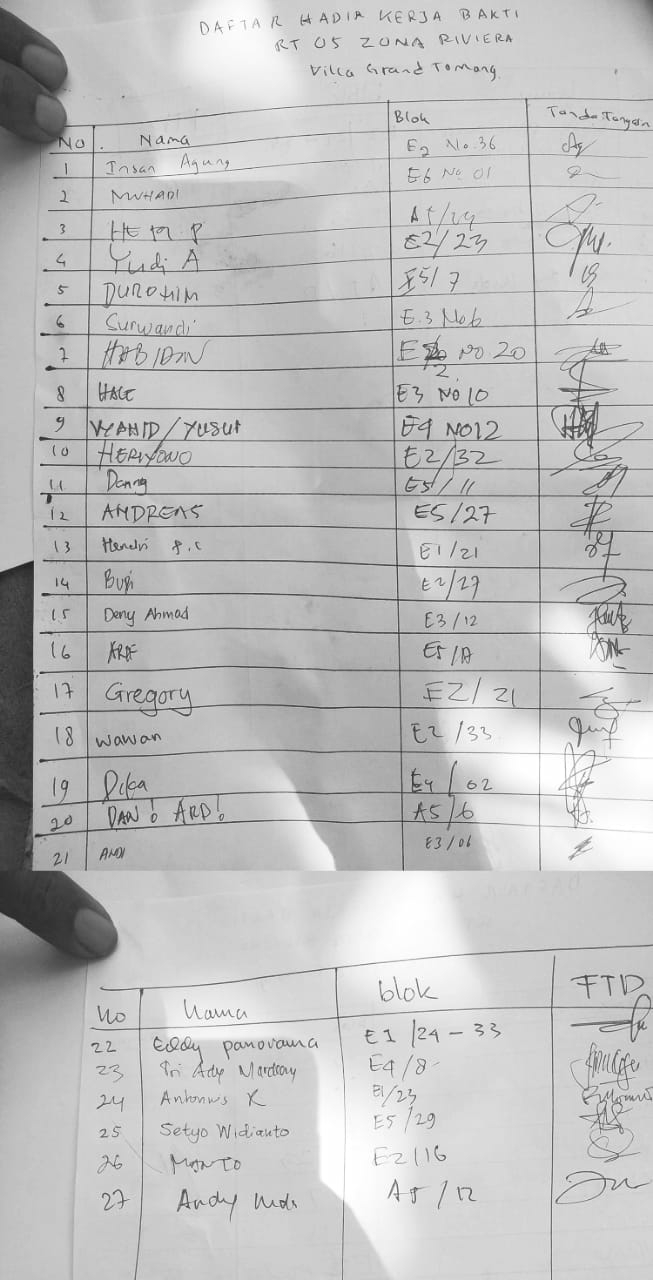 DAFTAR HADIR KERJA BAKTI
RT 05 ZONA RIVIERA
Villa Grand Tomang
No. Nama Blok Tanda Tangan
1 Insan Agung E2 No.36
2 MUHADI E6 No 01
3 HERI P A5/29
4 Yudi A E2/23
5 DUROHIM E5/7
6 Surwandi E.3 No 6
7 HABIDAN E2 NO 20
8 E3 NO 10
9 WAHID/YUSUF E4 NO12
10 HERIYONO E2/32
11 Danny E5/11
12 ANDREAS E5/27
13 Hendri S.C E1/21
14 Budi E2/27
15 Deny Ahmad E3/12
16 ARIF E5/
17 Gregory E2/21
18 wawan E2/33
19 Dika E4/02
20 DANI ARDI A5/6
21 ANDI E3/06
No Nama blok FTD
22 Eddy panorama E1/24-33
23 Tri Ady E4/8
24 Antonius K E1/23
25 Setyo Widianto E5/29
26 MANTO E2/16
27 Andy A5/12